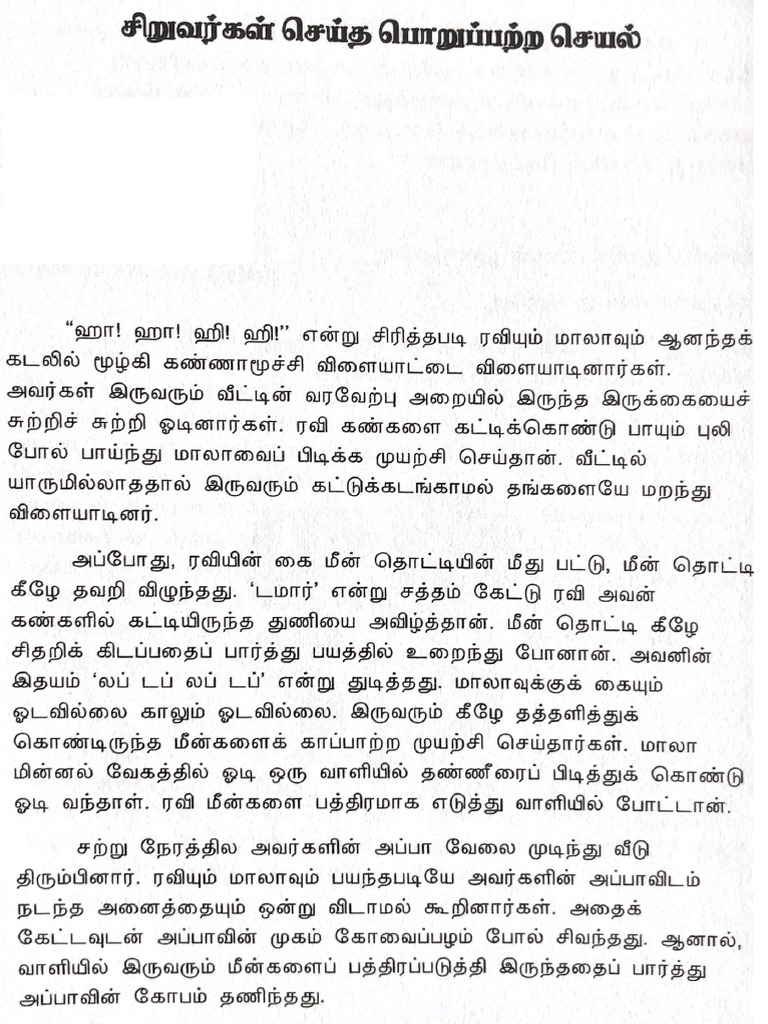 சிறுவர்கள் செய்த பொறுப்பற்ற செயல்
“ஹா! ஹா! ஹி! ஹி!” என்று சிரித்தபடி ரவியும் மாலாவும் ஆனந்தக்
கடலில் மூழ்கி கண்ணாமூச்சி விளையாட்டை விளையாடினார்கள்.
அவர்கள் இருவரும் வீட்டின் வரவேற்பு அறையில் இருந்த இருக்கையைச்
சுற்றிச் சுற்றி ஓடினார்கள். ரவி கண்களை கட்டிக்கொண்டு பாயும் புலி
போல் பாய்ந்து மாலாவைப் பிடிக்க முயற்சி செய்தான். வீட்டில்
யாருமில்லாததால் இருவரும் கட்டுக்கடங்காமல் தங்களையே மறந்து
விளையாடினர்.
அப்போது, ரவியின் கை மீன் தொட்டியின் மீது பட்டு, மீன் தொட்டி
கீழே தவறி விழுந்தது. ‘டமார்’ என்று சத்தம் கேட்டு ரவி அவன்
கண்களில் கட்டியிருந்த துணியை அவிழ்த்தான். மீன் தொட்டி கீழே
சிதறிக் கிடப்பதைப் பார்த்து பயத்தில் உறைந்து போனான். அவனின்
இதயம் ‘லப் டப் லப் டப்’ என்று துடித்தது. மாலாவுக்குக் கையும்
ஓடவில்லை காலும் ஓடவில்லை. இருவரும் கீழே தத்தளித்துக்
கொண்டிருந்த மீன்களைக் காப்பாற்ற முயற்சி செய்தார்கள். மாலா
மின்னல் வேகத்தில் ஓடி ஒரு வாளியில் தண்ணீரைப் பிடித்துக் கொண்டு
ஓடி வந்தாள். ரவி மீன்களை பத்திரமாக எடுத்து வாளியில் போட்டான்.
சற்று நேரத்தில அவர்களின் அப்பா வேலை முடிந்து வீடு
திரும்பினார். ரவியும் மாலாவும் பயந்தபடியே அவர்களின் அப்பாவிடம்
நடந்த அனைத்தையும் ஒன்று விடாமல் கூறினார்கள். அதைக்
கேட்டவுடன் அப்பாவின் முகம் கோவைப்பழம் போல் சிவந்தது. ஆனால்,
வாளியில் இருவரும் மீன்களைப் பத்திரப்படுத்தி இருந்ததைப் பார்த்து
அப்பாவின் கோபம் தணிந்தது.